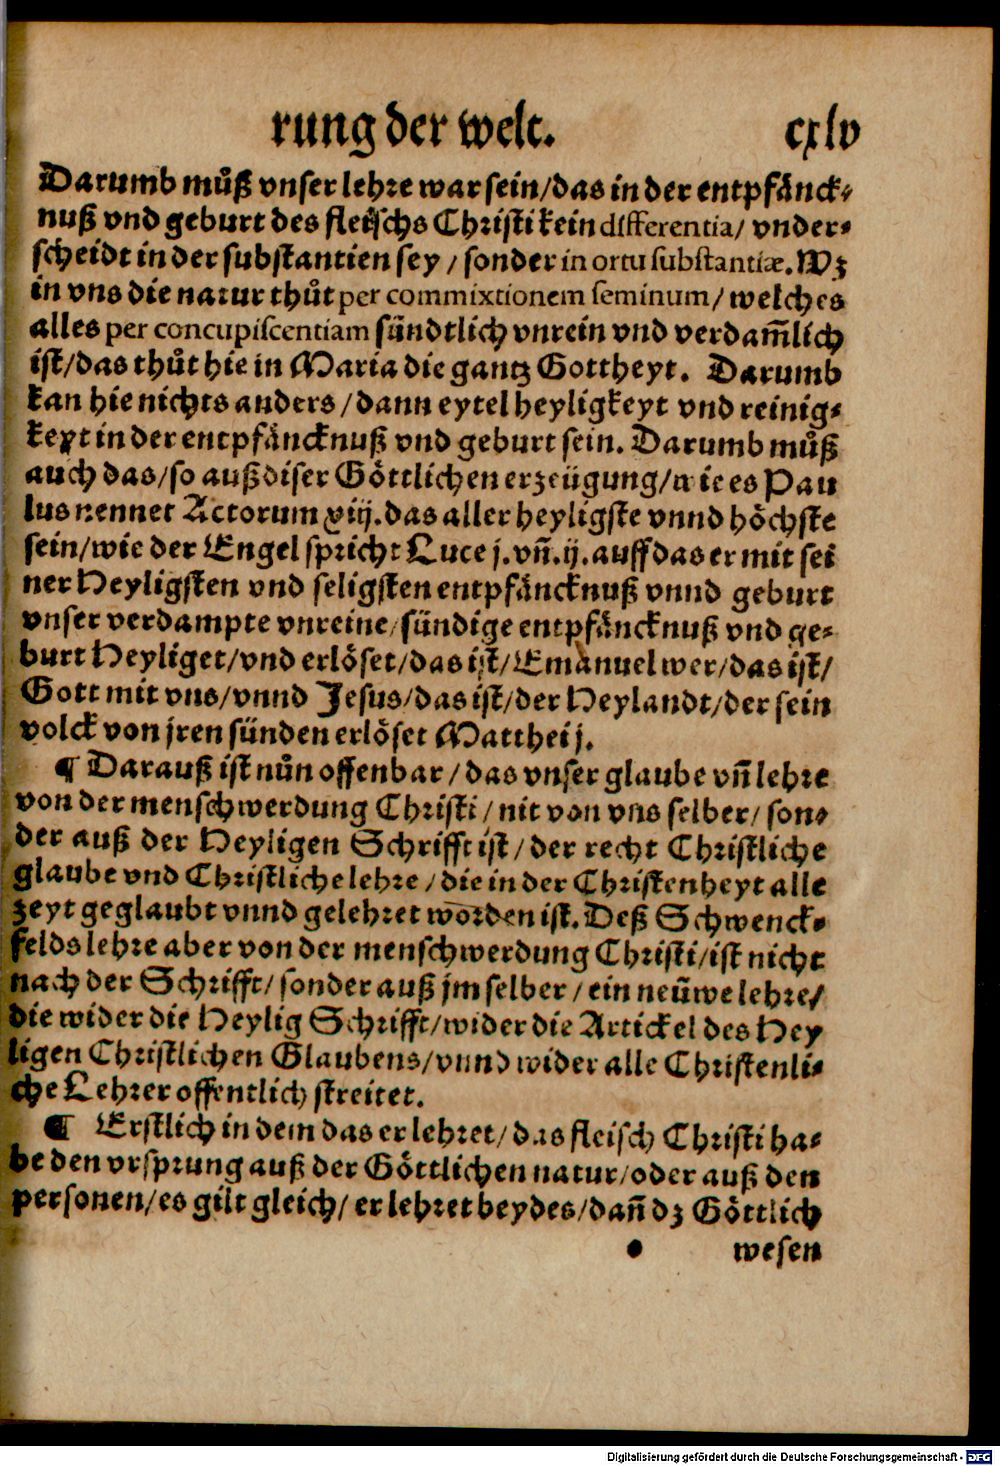 rung der welt. cxlv
Darumb muͤß vnser lehre war sein/das in der entpfaͤnck⸗
nuß vnd geburt des fleischs Christi kein differentia/ vnder⸗
scheidt in der substantien sey / sonder in ortu substantiæ. Wz
in vns die natur thuͤt per commixtionem seminum/ welches
alles per concupiscentiam suͤndtlich vnrein vnd verdam̃lich
ist/das thuͤt hie in Maria die gantz Gottheyt. Darumb
kan hie nichts anders /dann eytel heyligkeyt vnd reinig⸗
keyt in der entpfaͤncknuß vnd geburt sein. Darumb muͤß
auch das/so auß diser Goͤttlichen erzeügung/wie es Pau
lus nennet Actorum xiij.das aller heyligste vnnd hoͤchste
sein/wie der Engel spricht Luce j.vn̄.ij.auff das er mit sei
ner Heyligsten vnd seligsten entpfaͤncknuß vnnd geburt
vnser verdampte vnreine/suͤndige entpfaͤncknuß vnd ge⸗
burt Heyliget/vnd erloͤset/das ist/Emanuel wer/das ist/
Gott mit vns/vnnd Jesus/das ist/der Heylandt/der sein
volck von jren suͤnden erloͤset Matthei j.
¶ Darauß ist nuͤn offenbar /das vnser glaube vn̄ lehre
von der menschwerdung Christi / nit von vns selber/ son⸗
der auß der Heyligen Schrifft ist / der recht Christliche
glaube vnd Christliche lehre /die in der Christenheyt alle
zeyt geglaubt vnnd gelehret worden ist. Deß Schwenck⸗
felds lehre aber von der menschwerdung Christi/ist nicht
nach der Schrifft/ sonder auß jm selber / ein neüwe lehre/
die wider die Heylig Schrifft/wider die Artickel des Hey
ligen Christlichen Glaubens/vnnd wider alle Christenli⸗
che Lehrer offentlich streitet.
¶ Erstlich in dem das er lehret/ das fleisch Christi ha⸗
be den vrsprung auß der Goͤttlichen natur/oder auß den
personen/es gilt gleich/ er lehret beydes/dan̄ dz Goͤttlich
wesen
Digitalisierung gefördert durch die Deutsche Forschungsgemeinschaft - DFG